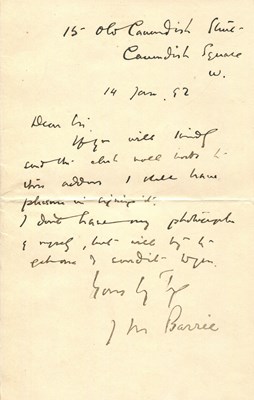 15 Old Cavendish Street
Cavendish Square
W.
14 Jan. 92
Dear Sir
If you will kindly
send the club roll book to
this address I shall have
pleasure in signing it.
I don't have any photographs
of myself, but will try to
get one & send it to you.
Yours
J M Barrie